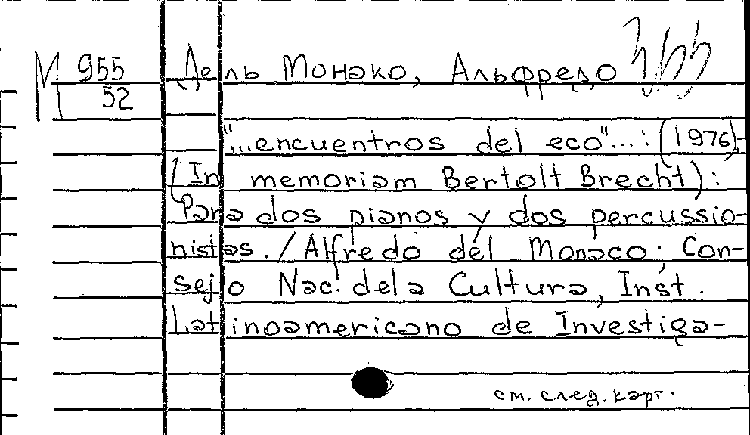 М 955 Дель Монако, Альфредо
52
"...encuentros del eco"...: (1976).
(In memoriam Bertolt Brecht):
Para dos pianos y dos percussio-
nistas. / Alfredo del Monaco; Con-
sejo Nac. dela Cultura, Inst.
Latinoamericano de Investiga-
см. след. карт.